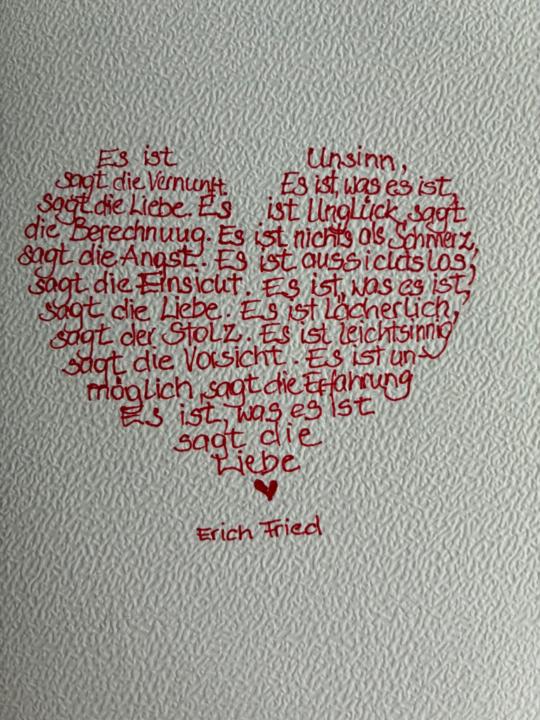 Es ist Unsinn,
sagt die Vernunft Es ist was es ist,
sagt die Liebe. Es ist Unglück, sagt
die Berechnuug. Es ist nichts als Schmerz,
sagt die Angst. Es ist aussichtslos,
sagt die Einsicht. Es ist was es ist,
sagt die Liebe. Es ist Lächerlich,
sagt der Stolz. Es ist leichtsinnig
sagt die Vorsicht. Es ist un-
möglich, sagt die Erfahrung
Es ist, was es ist
sagt die
Liebe
Erich Fried